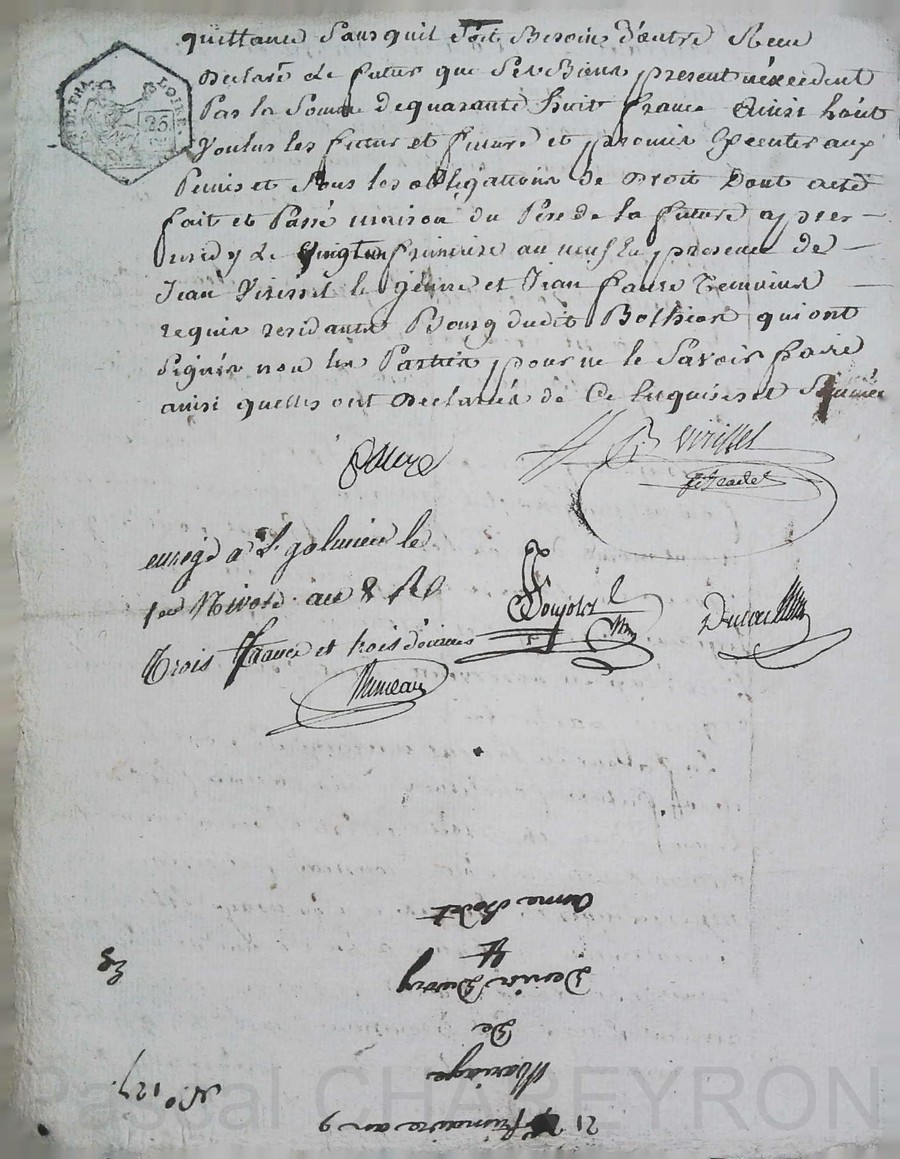 quittance Sans quil Soit Besoin d'autre Recu
Declare Le futur que Ses Biens present nexcedent
Pas la Somme de quarante huit franc Ainsi
Voulus les futur et future et promis Executer aux
Peines et Sous les obligations de Droit Dont acte
fait et Passé maison du Pere de la future apres
midy Le vingt un frimaire an neuf En presence de
Jean le jeune et Jean faure Temoins
requis residants Bourg dudit qui ont
Signés non les Parties pour ne le Savoir faire
ainsi quelles ont Declarés de Ce Enquises et Sommées
faure
enregé a St galmier le
1er Nivose an 9
Trois franc et trois décimes
21 frimaire an 9
Mariage
De
Denis
&
Anne
No 127
25